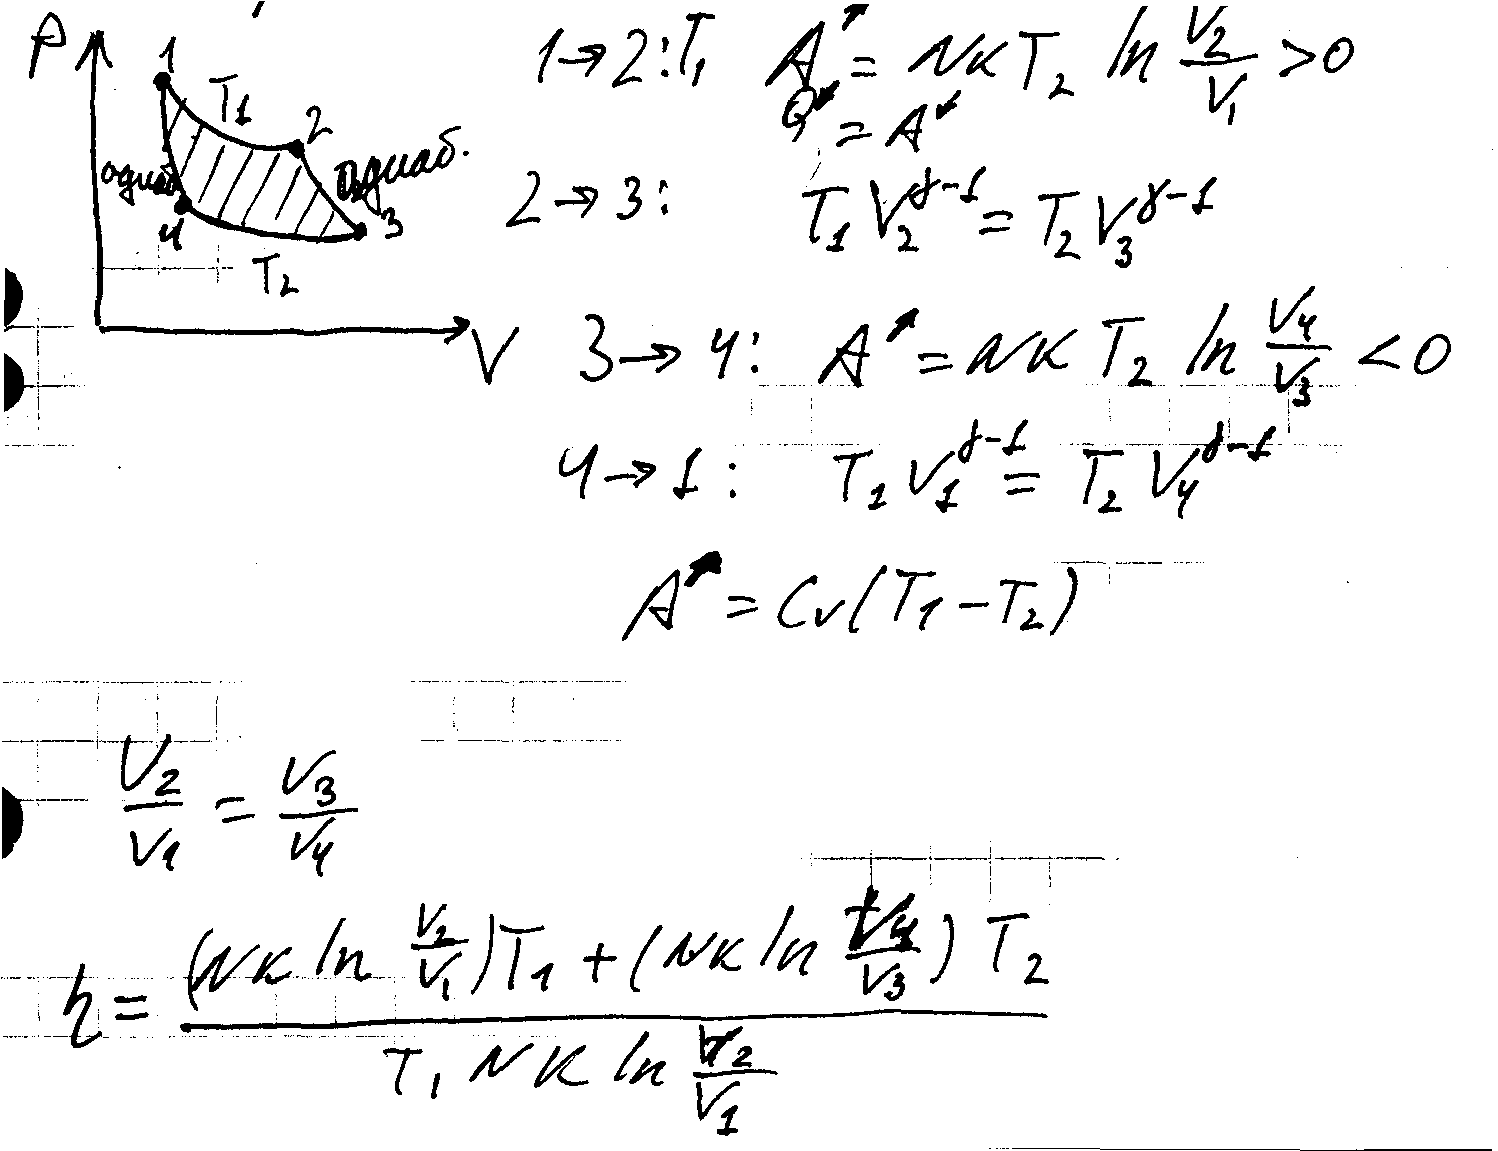 P
1
T₁
2
адиаб.
адиаб
4
3
T₂
V
1→2: T₁ A↗ = NKT₂ ln V₂/V₁ > 0
Q↙ = A↙
2→3: T₁V₂^(γ-1) = T₂V₃^(γ-1)
3→4: A↗ = NKT₂ ln V₄/V₃ < 0
4→1: T₁V₁^(γ-1) = T₂V₄^(γ-1)
A↗ = Cv(T₁-T₂)
V₂/V₁ = V₃/V₄
η = ((NK ln V₂/V₁)T₁ + (NK ln V₄/V₃)T₂) / (T₁NK ln V₂/V₁)